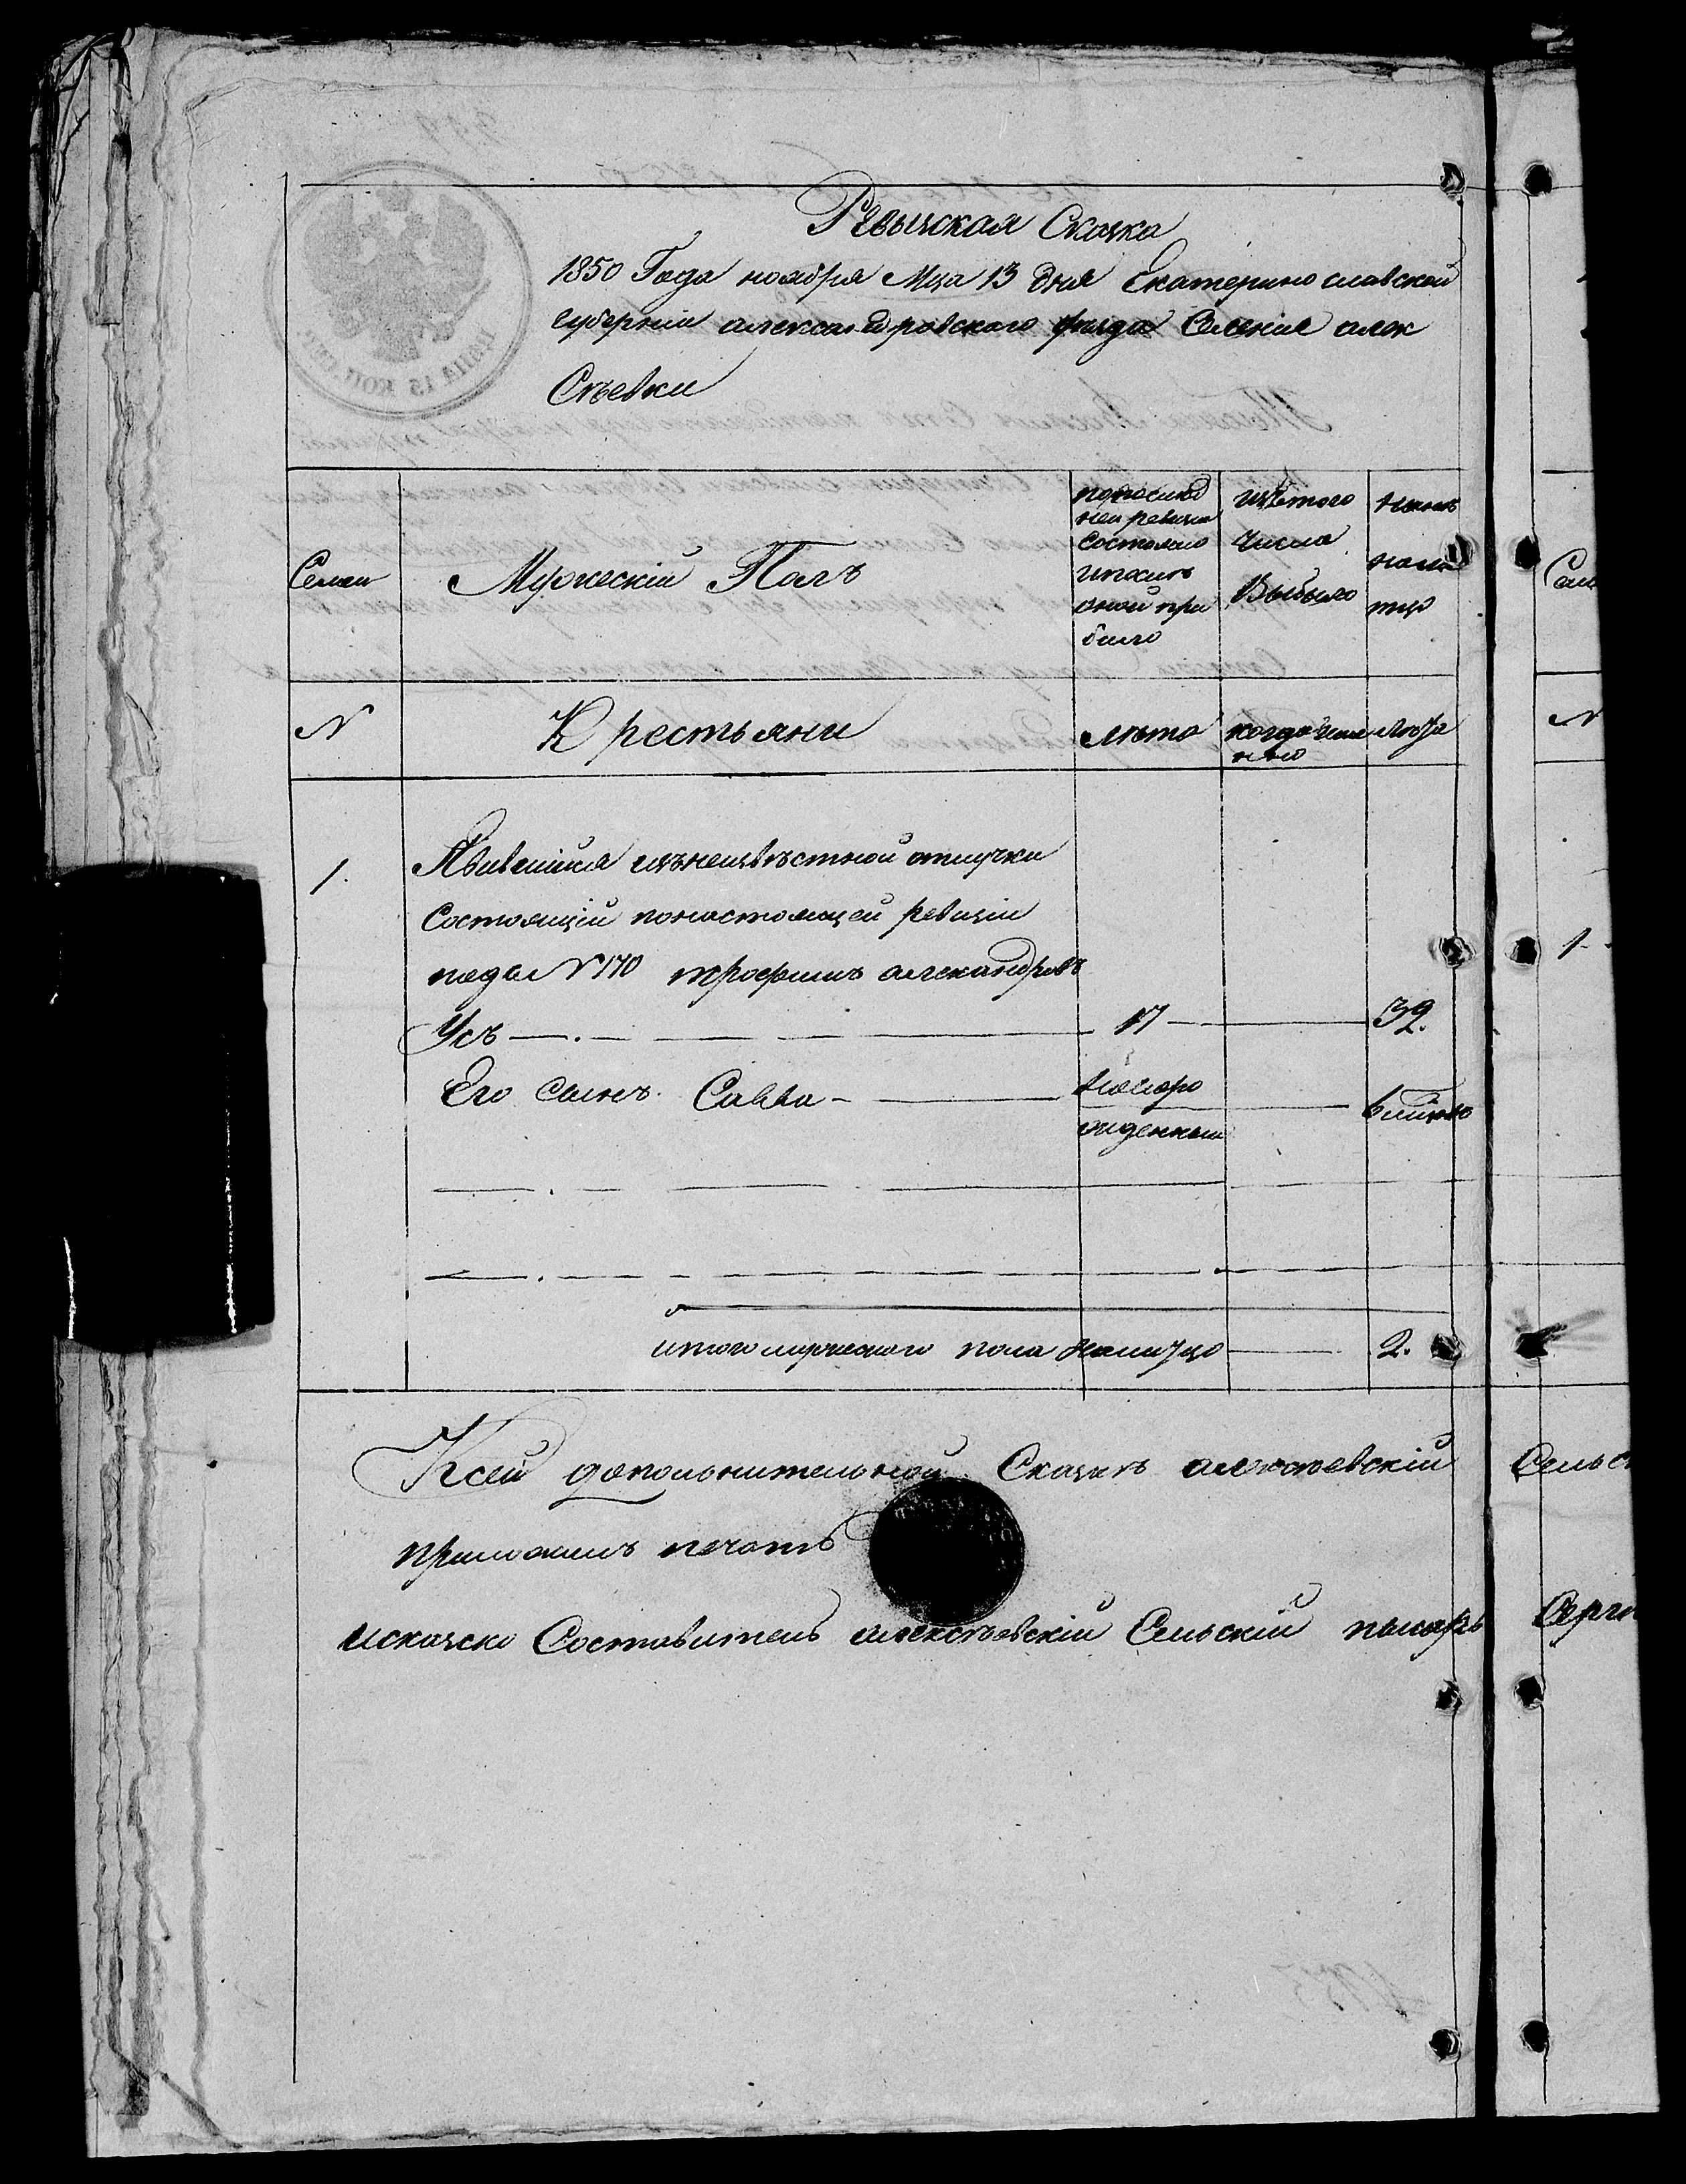 Ревыиская Скаска
1850 Года ноября Мца 13 дня Екатеринославской
губернии александровского уезда Селения алек
сѣевки
Семеи
Мужескій Полъ
попослѣд
ней ревизіи
состояло
ипослѣ
оной при
было
изътого
числа
Выбыло
нынѣ
нали
тцо
N
Крестьяни
лѣта
когда имя
нно
лѣта
1.
Явившійся изънеизвѣстной отлучки
Состоящій понастоящей ревизіи
подъ N 170 трофимъ александровъ
Усъ
17
32.
Его Сынъ Савва
новоро
жденный
итого мужеского пола налицо
2.
Ксей дополнительной Сказкѣ алексѣевскій Сельс
приложилъ печать
исказки Составитель алексѣевскій Сельскій писарь
N
1